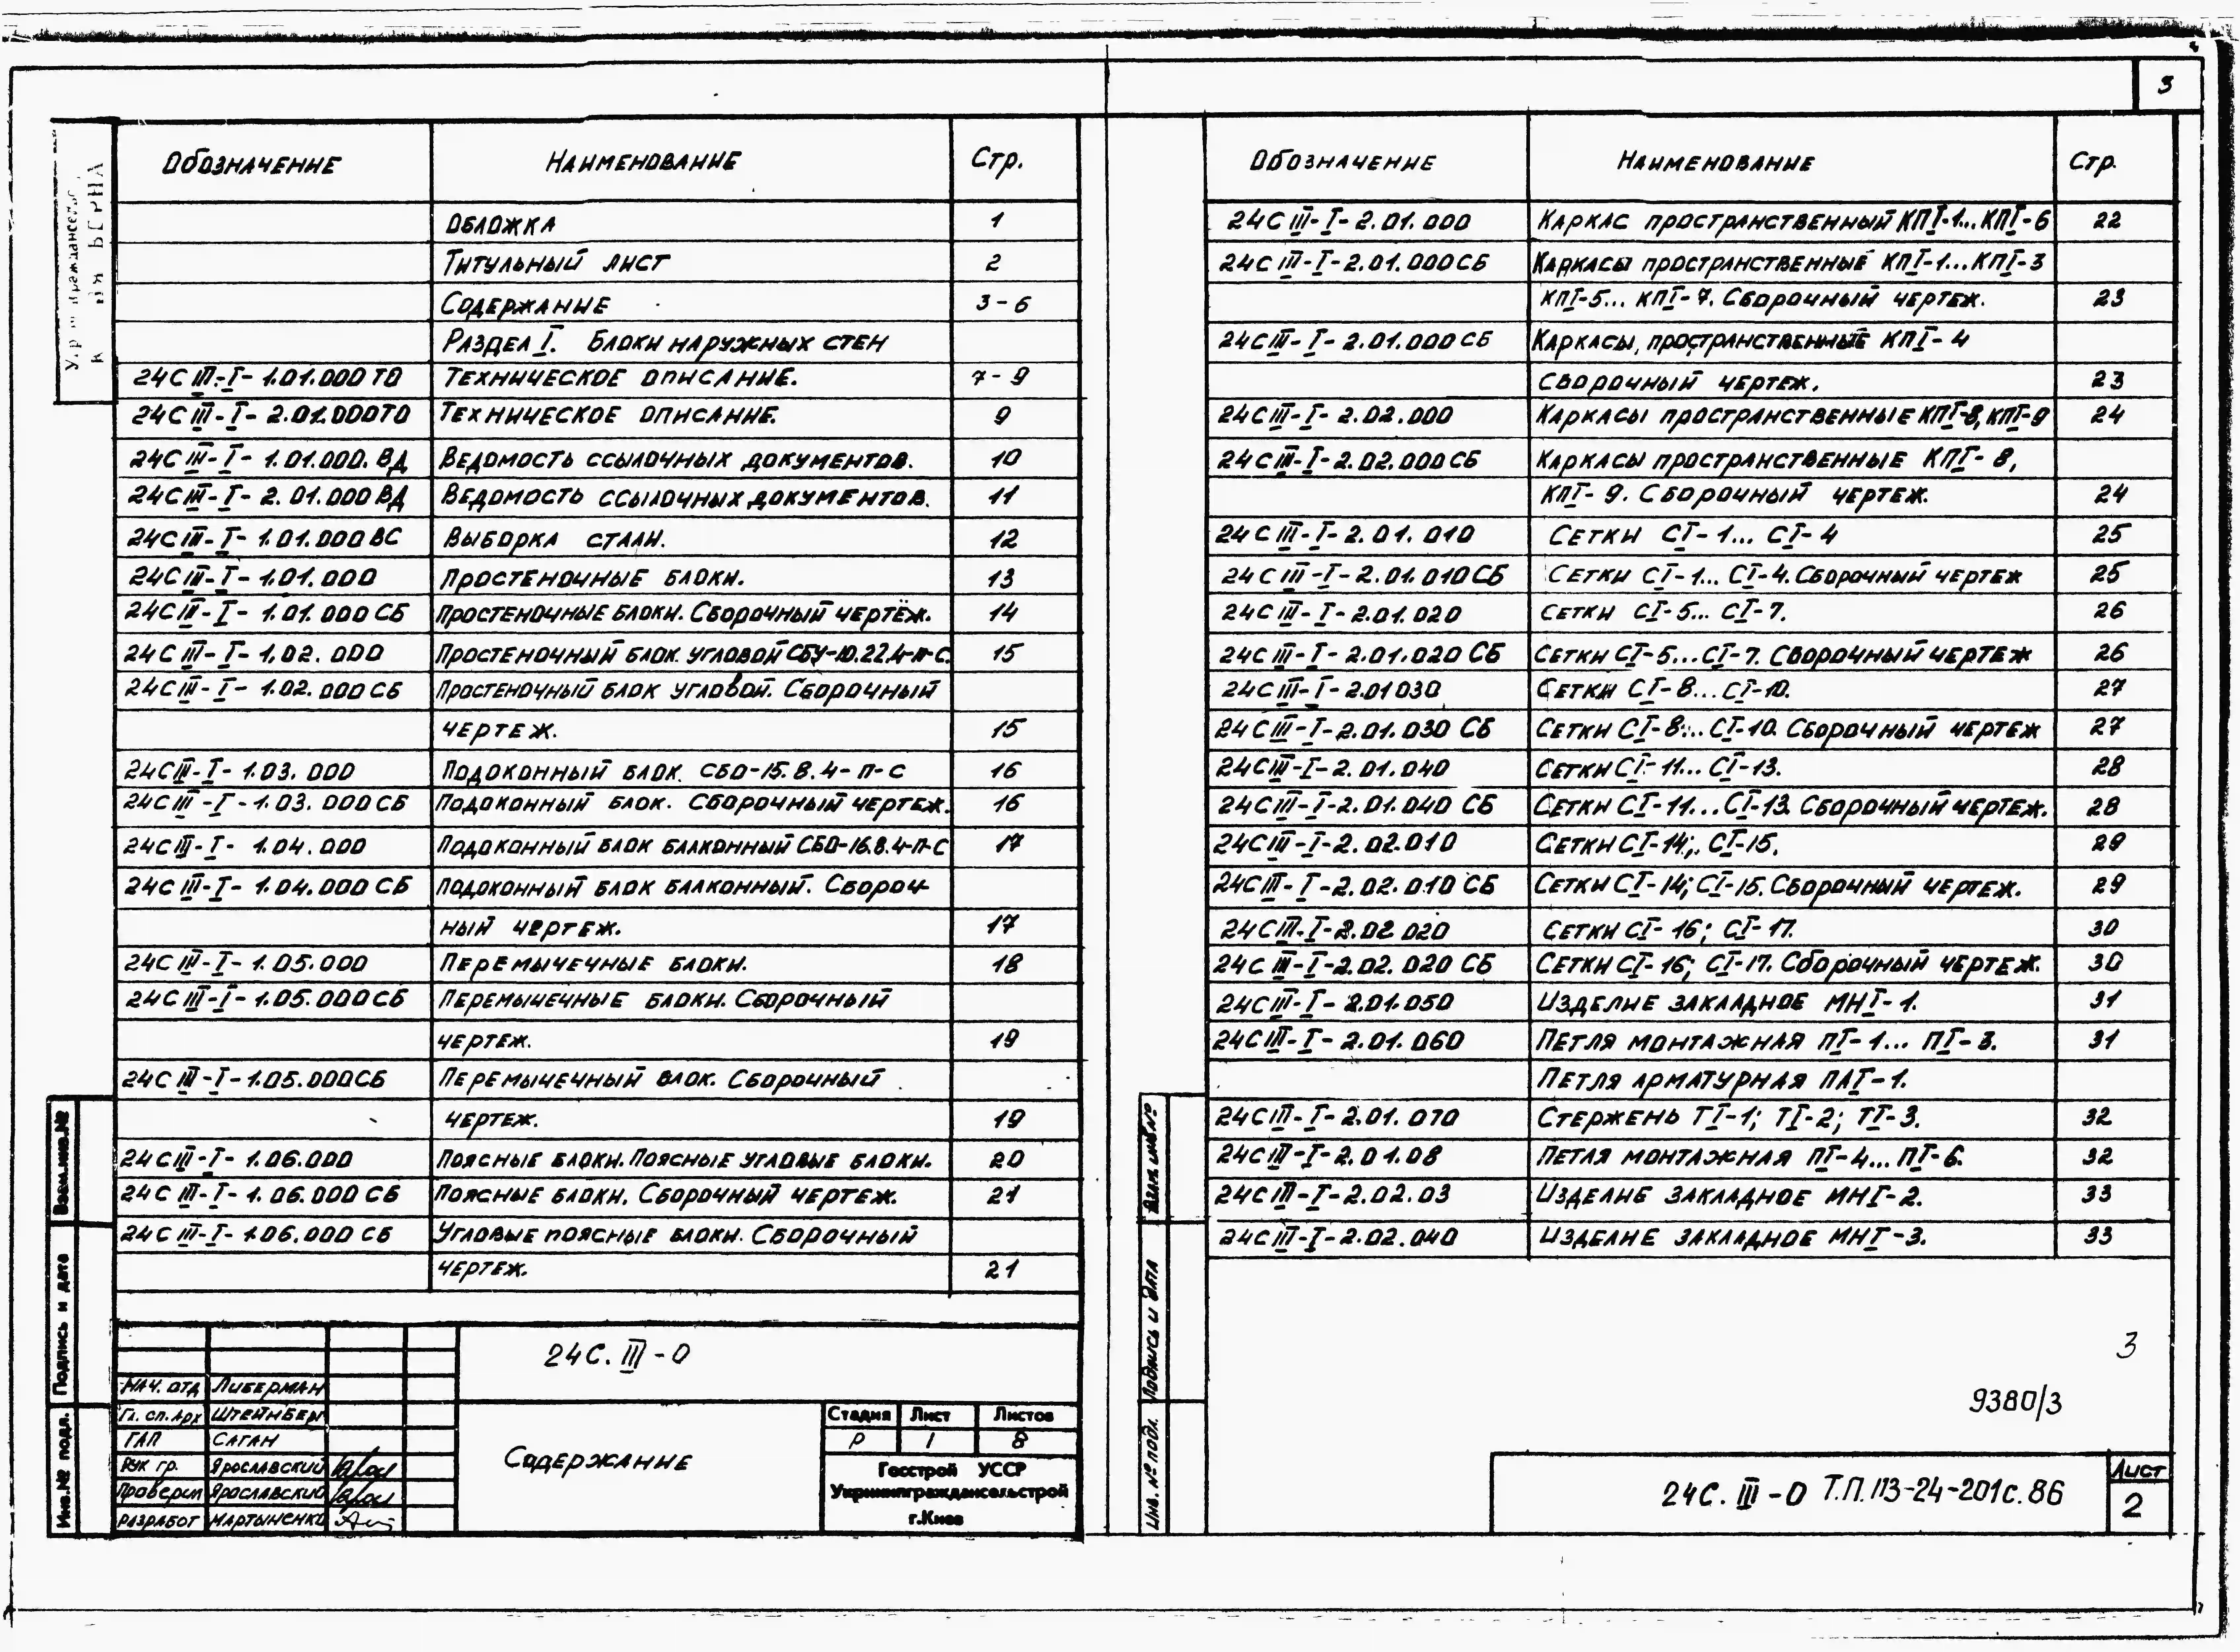 3
Обозначение Наименование Стр.
Обложка 1
Титульный лист 2
Содержание 3-6
Раздел I. Блоки наружных стен
24С III-I-1.01.000 ТО Техническое описание. 7-9
24С III-I-2.01.000ТО Техническое описание. 9
24С III-I-1.01.000.ВД Ведомость ссылочных документов. 10
24С III-I-2.01.000ВД Ведомость ссылочных документов. 11
24С III-I-1.01.000ВС Выборка стали. 12
24С III-I-1.01.000 Простеночные блоки. 13
24С III-I-1.01.000СБ Простеночные блоки. Сборочный чертёж. 14
24С III-I-1.02.000 Простеночный блок угловой СБУ-10.22.4-П-С. 15
24С III-I-1.02.000СБ Простеночный блок угловой. Сборочный
чертеж. 15
24С III-I-1.03.000 Подоконный блок. СБО-15.8.4-П-С 16
24С III-I-1.03.000СБ Подоконный блок. Сборочный чертеж. 16
24С III-I-1.04.000 Подоконный блок балконный СБО-16.8.4-П-С 17
24С III-I-1.04.000СБ Подоконный блок балконный. Сбороч-
ный чертеж. 17
24С III-I-1.05.000 Перемычечные блоки. 18
24С III-I-1.05.000СБ Перемычечные блоки. Сборочный
чертеж. 19
24С III-I-1.05.000СБ Перемычечный блок. Сборочный
чертеж. 19
24С III-I-1.06.000 Поясные блоки. Поясные угловые блоки. 20
24С III-I-1.06.000СБ Поясные блоки. Сборочный чертеж. 21
24С III-I-1.06.000 СБ Угловые поясные блоки. Сборочный
чертеж. 21
24С. III-0
Нач. отд Либерман
Гл. сп. Арх Штейнберг
ГАП Саган
Рук гр. Ярославский
Проверил Ярославский
Разработ Мартыненко
Содержание
Стадия Лист Листов
Р 1 8
Госстрой УССР
Укрниипграждансельстрой
г.Киев
Взам.инв.№
Подпись и дата
Инв.№ подл.
Обозначение Наименование Стр.
24С III-I-2.01.000 Каркас пространственный КПI-1...КПI-6 22
24С III-I-2.01.000СБ Каркасы пространственные КПI-1...КПI-3
КПI-5... КПI-7. Сборочный чертеж. 23
24С III-I-2.01.000СБ Каркасы, пространственные КПI-4
Сборочный чертеж. 23
24С III-I-2.02.000 Каркасы пространственные КПI-8, КПI-9 24
24С III-I-2.02.000СБ Каркасы пространственные КПI-8,
КПI-9. Сборочный чертеж. 24
24С III-I-2.01.010 Сетки СI-1... СI-4 25
24С III-I-2.01.010СБ Сетки СI-1... СI-4. Сборочный чертеж 25
24С III-I-2.01.020 Сетки СI-5... СI-7. 26
24С III-I-2.01.020 СБ Сетки СI-5...СI-7. Сборочный чертеж 26
24С III-I-2.01030 Сетки СI-8...СI-10. 27
24С III-I-2.01.030 СБ Сетки СI-8...СI-10. Сборочный чертеж 27
24С III-I-2.01.040 Сетки СI-11... СI-13. 28
24С III-I-2.01.040 СБ Сетки СI-11...СI-13. Сборочный чертеж. 28
24С III-I-2.02.010 Сетки СI-14; СI-15. 29
24С III-I-2.02.010 СБ Сетки СI-14; СI-15. Сборочный чертеж. 29
24С III-I-2.02 020 Сетки СI-16; СI-17. 30
24С III-I-2.02.020 СБ Сетки СI-16; СI-17. Сборочный чертеж. 30
24С III-I-2.01.050 Изделие закладное МНI-1. 31
24С III-I-2.01.060 Петля монтажная ПI-1... ПI-3. 31
Петля арматурная ПАI-1.
24С III-I-2.01.070 Стержень ТI-1; ТI-2; ТI-3. 32
24С III-I-2.01.08 Петля монтажная ПI-4... ПI-6. 32
24С III-I-2.02.03 Изделие закладное МНI-2. 33
24С III-I-2.02.040 Изделие закладное МНI-3. 33
Взам. инв.№
Подпись и дата
Инв. № подл.
3
9380/3
24С. III-0 Т.П. 113-24-201с.86
Лист
2